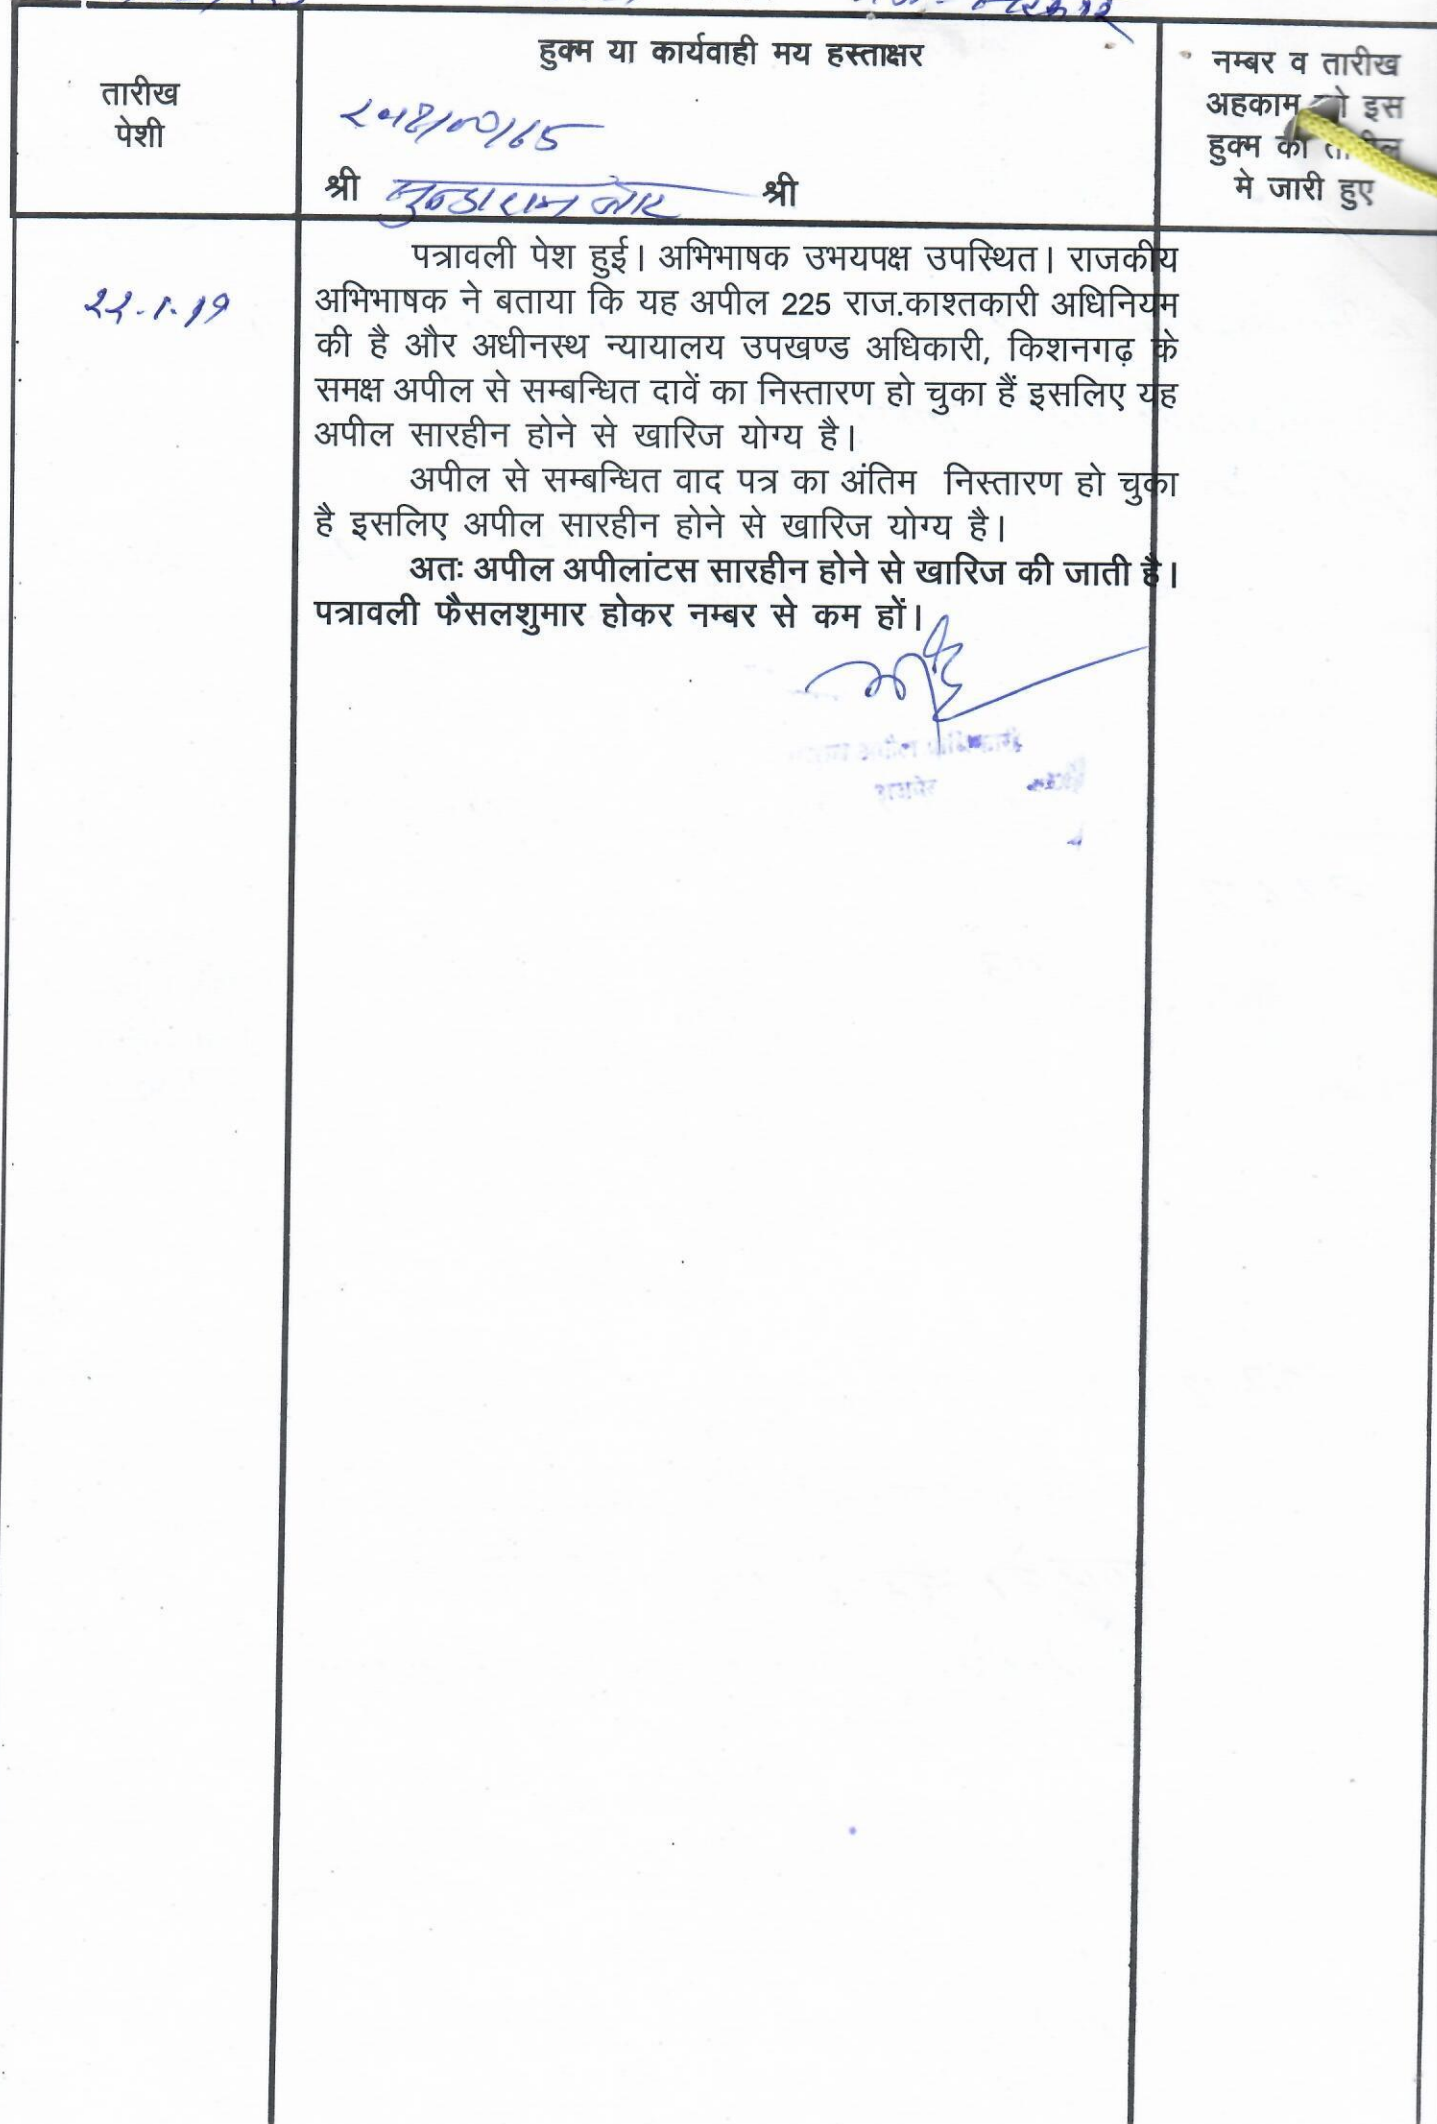 हुक्म या कार्यवाही मय हस्ताक्षर
तारीख
पेशी
नम्बर व तारीख
अहकाम जो इस
हुक्म की तामील
मे जारी हुए
श्री श्री
22-1-19
पत्रावली पेश हुई। अभिभाषक उभयपक्ष उपस्थित। राजकीय
अभिभाषक ने बताया कि यह अपील 225 राज.काश्तकारी अधिनियम
की है और अधीनस्थ न्यायालय उपखण्ड अधिकारी, किशनगढ़ के
समक्ष अपील से सम्बन्धित दावें का निस्तारण हो चुका हैं इसलिए यह
अपील सारहीन होने से खारिज योग्य है।
अपील से सम्बन्धित वाद पत्र का अंतिम निस्तारण हो चुका
है इसलिए अपील सारहीन होने से खारिज योग्य है।
अतः अपील अपीलांटस सारहीन होने से खारिज की जाती है।
पत्रावली फैसलशुमार होकर नम्बर से कम हों।